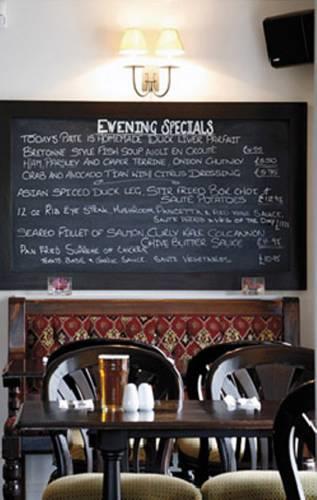 EVENING SPECIALS
TODAYS PATE IS HOMEMADE DUCK LIVER PARFAIT
BRETONNE STYLE FISH SOUP AIOLI EN CROUTE
HAM, PARSLEY AND CAPER TERRINE, ONION CHUTNEY £5.50
CRAB AND AVOCADO TIAN WITH CITRUS DRESSING £5.95
ASIAN SPICED DUCK LEG, STIR FRIED BOK CHOI &
SAUTÉ POTATOES £12.95
12 OZ RIB EYE STEAK, MUSHROOM, PANCETTA & RED WINE SAUCE,
SAUTE POTATOES & VEG OF THE DAY
SEARED FILLET OF SALMON, CURLY KALE COLCANNON
CHIVE BUTTER SAUCE
PAN FRIED SUPREME OF CHICKEN
BASIL & GARLIC SAUCE. SAUTE VEGETABLES £10.95